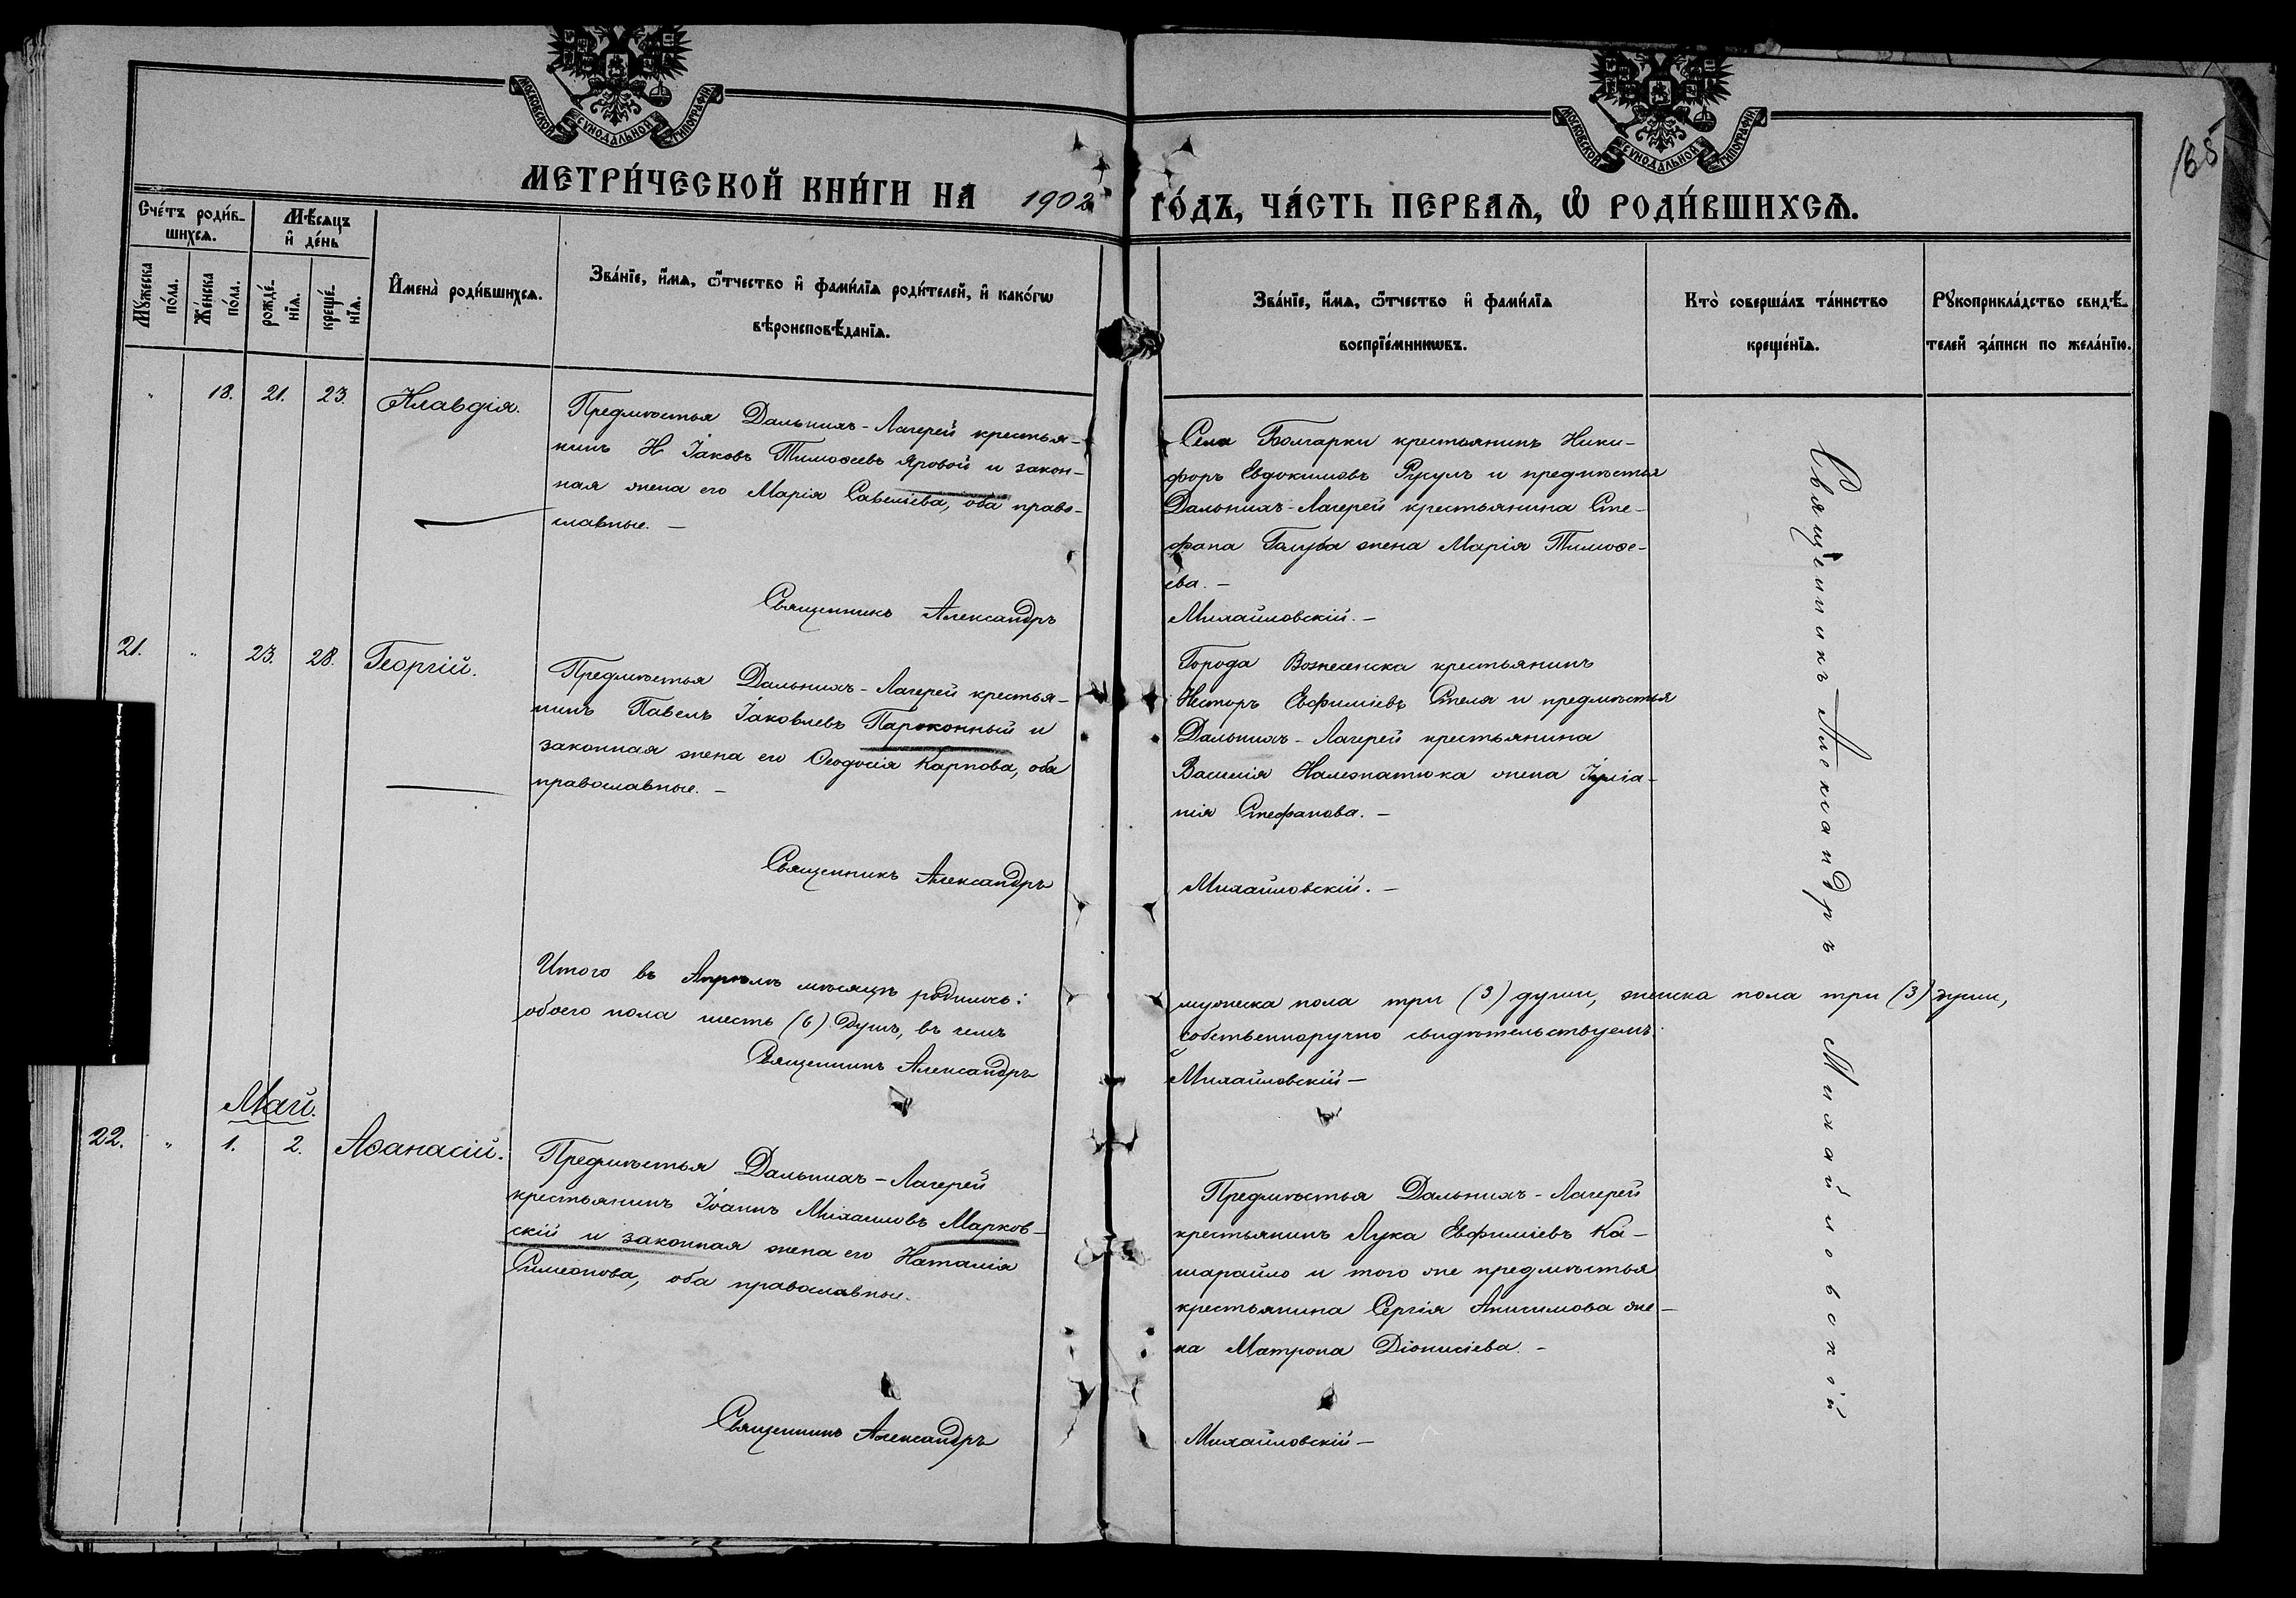 МОСКОВСКОЙ СѴНОДАЛЬНОЙ ТИПОГРАФІИ
МОСКОВСКОЙ СѴНОДАЛЬНОЙ ТИПОГРАФІИ
165
МЕТРИ́ЧЕСКОЙ КНИ́ГИ НА 1902 ГО́ДЪ, ЧА́СТЬ ПЕРВАѦ, Ѡ҆ РОДИ́ВШИХСѦ.
Сче́тъ роди́в-
шихсѧ.
Мѣ́сѧцъ
и҆ де́нь
Мꙋ́жеска
по́ла.
Же́нска
по́ла.
рожде́-
нїѧ.
креще́-
нїѧ.
И҆мена̀ роди́вшихсѧ.
Зва́нїе, и҆́мѧ, ѻ҆́тчество и҆ фами́лїѧ роди́телей, и҆ како́гѡ
вѣроисповѣ́данїѧ.
Зва́нїе, и҆́мѧ, ѻ҆́тчество и҆ фами́лїѧ
воспрїе́мникѡвъ.
Кто̀ соверша́лъ та́инство
креще́нїѧ.
Рꙋкоприкла́дство свидѣ́-
телей за́писи по жела́нїю.
" 18. 21. 23. Клавдія.
Предмѣстья Дальнихъ-Лагерей крестья-
нинъ Н Іаковъ Тимоѳеевъ Яровой и закон-
ная жена его Марія Савеліева, оба право-
славные. —
Священникъ Александръ
Села Болгарки крестьянинъ Ники-
форъ Евдокимовъ и предмѣстья
Дальнихъ-Лагерей крестьянина Сте-
фана Голуба жена Марія Тимоѳе-
ева. —
Михайловскій. —
21. " 23. 28. Георгій.
Предмѣстья Дальнихъ-Лагерей крестья-
нинъ Павелъ Іаковлевъ Пароконный и
законная жена его Ѳеодосія Карпова, оба
православные. —
Священникъ Александръ
Города Вознесенска крестьянинъ
Несторъ Евфиміевъ Стеля и предмѣстья
Дальнихъ-Лагерей крестьянина
Василія жена Іуліа-
нія Стефанова. —
Михайловскій. —
Итого въ Апрѣлѣ мѣсяцѣ родилось: мужеска пола три (3) души, женска пола три (3) души,
обоего пола шесть (6) душъ, въ чемъ собственноручно свидѣтельствуемъ:
Священникъ Александръ Михайловскій —
Май.
22. " 1. 2. Аѳанасій.
Предмѣстья Дальнихъ-Лагерей
крестьянинъ Іоаннъ Михаиловъ Марков-
скій и законная жена его Наталія
Симеонова, оба православные.
Священникъ Александръ
Предмѣстья Дальнихъ-Лагерей
крестьянинъ Лука Евфиміевъ Ка-
шарайло и того же предмѣстья
крестьянина Сергія Анисимова же-
на Матрона Діонисіева. —
Михайловскій —
Священникъ Александръ Михайловскій